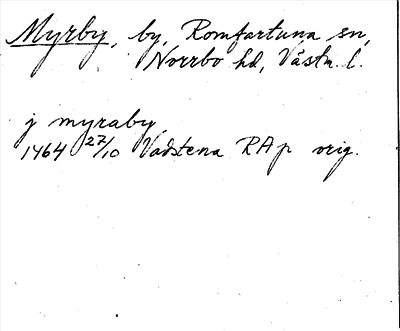 Myrby, by, Romfartuna sn,
Norrbo hd, Västm. l.
j myraby
1464 27/10 Vadstena RAp orig.